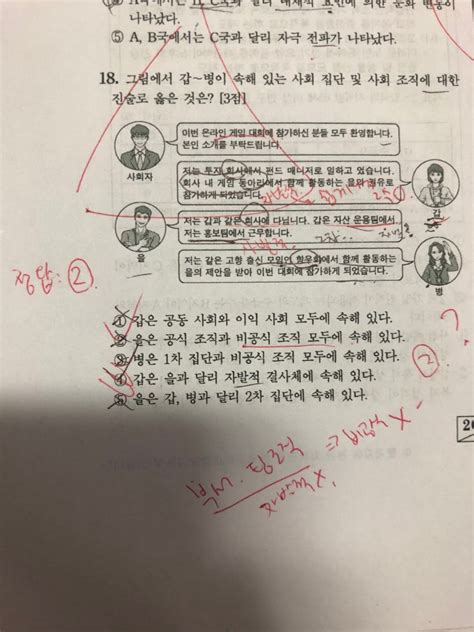 나타났다.
⑤ A, B국에서는 C국과 달리 자극 전파가 나타났다.
18. 그림에서 갑～병이 속해 있는 사회 집단 및 사회 조직에 대한
진술로 옳은 것은? [3점]
이번 온라인 게임 대회에 참가하신 분들 모두 환영합니다.
본인 소개를 부탁드립니다.
사회자
저는 투자 회사에서 펀드 매니저로 일하고 있습니다.
회사 내 게임 동아리에서 함께 활동하는 을의 권유로
참가하게 되었습니다.
갑
저는 갑과 같은 회사에 다닙니다. 갑은 자산 운용팀에서
저는 홍보팀에서 근무합니다.
을
저는 같은 고향 출신 모임인 향우회에서 함께 활동하는
을의 제안을 받아 이번 대회에 참가하게 되었습니다.
병
정답: ②
① 갑은 공동 사회와 이익 사회 모두에 속해 있다.
② 을은 공식 조직과 비공식 조직 모두에 속해 있다.
③ 병은 1차 집단과 비공식 조직 모두에 속해 있다.
④ 갑은 을과 달리 자발적 결사체에 속해 있다.
⑤ 을은 갑, 병과 달리 2차 집단에 속해 있다.
② ?